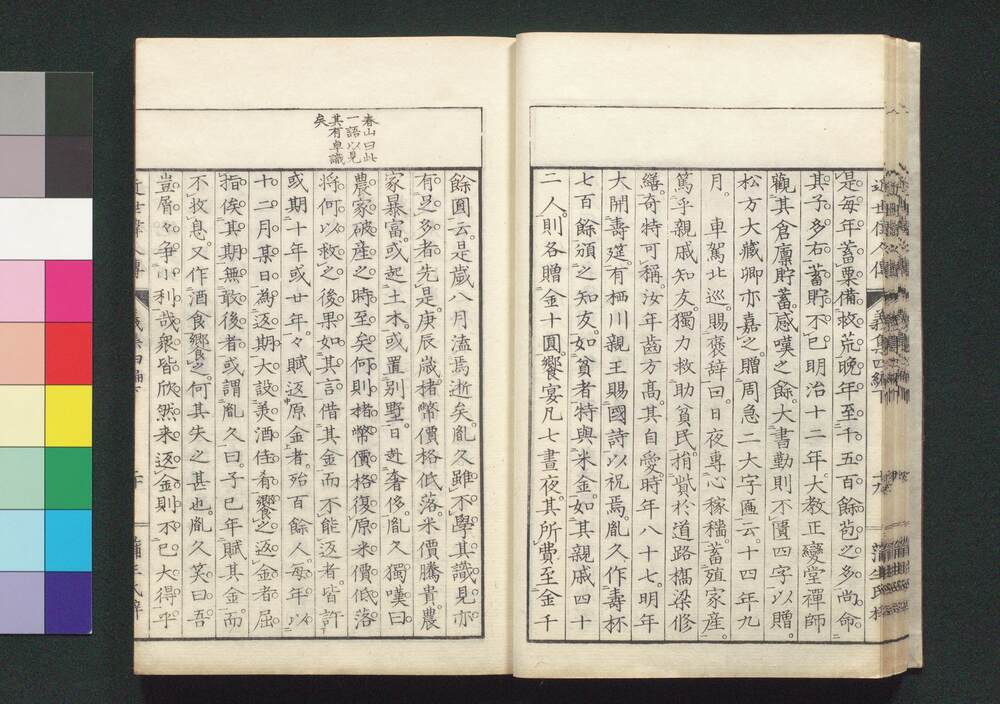 是每年蓄粟備救荒晚年至千五百餘苞之多尚命
其子多右蓄貯不已明治十二年大教正變堂禪師
觀其倉廩貯蓄感嘆之餘大書勤則不匱四字以贈
松方大藏卿亦嘉之贈周急二大字匾云十四年九
月車駕北巡賜褒辭曰日夜專心稼穡蓄殖家産
篤乎親戚知友獨力救助貧民捐貲於道路橋梁修
繕奇特可稱汝年齒方高其自愛時年八十七明年
大開壽筵有栖川親王賜國詩以祝焉胤久作壽杯
七百餘頒之知友如貧者特與米金如其親戚四十
二人則各贈金十圓饗宴凡七晝夜其所費至金千
春山曰此
一語以見
其有卓識
矣
餘圓云是歲八月溘焉逝矣胤久雖不學其識見亦
有足多者先是庚辰歲楮幣價格低落米價騰貴農
家暴富或起土木或置別墅日赴奢侈胤久獨嘆曰
農家破産之時至矣何則楮幣價格復原米價低落
將何以救之後果如其言借其金而不能返者皆許
或期十年或廿年々賦返原金者殆百餘人每年以
十二月某日為返期大設羹酒佳肴饗之返金者屈
指俟其期無敢後者或謂胤久曰子已年賦其金而
不收息又作酒食饗之何其失之甚也胤久笑曰吾
豈屑々爭小利哉衆皆欣然来返金則不已大得乎